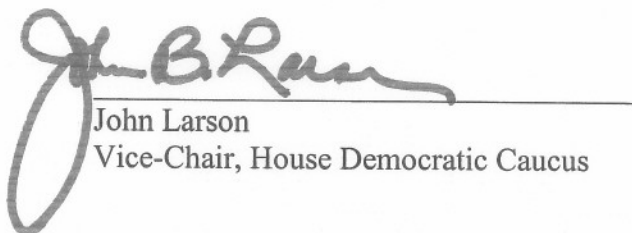 John B. Larson
John Larson
Vice-Chair, House Democratic Caucus